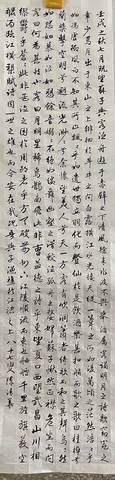 壬戌之秋七月既望蘇子與客泛舟遊于赤壁之下清風徐來水波不興舉酒屬客誦明月之詩歌窈窕之
章少焉月出于東山之上徘徊于斗牛之間白露橫江水光接天縱一葦之所如凌萬頃之茫然浩浩乎
如馮虛御風而不知其所止飄飄乎如遺世獨立羽化而登仙於是飲酒樂甚扣舷而歌之歌曰桂棹兮
蘭槳擊空明兮泝流光渺渺兮余懷望美人兮天一方客有吹洞簫者倚歌而和之其聲嗚嗚然
如怨如慕如泣如訴餘音嫋嫋不絕如縷舞幽壑之潛蛟泣孤舟之嫠婦蘇子愀然正襟危坐而問
客曰何為其然也客曰月明星稀烏鵲南飛此非曹孟德之詩乎東望夏口西望武昌山川相
繆鬱乎蒼蒼此非孟德之困於周郎者乎方其破荊州下江陵順流而東也舳艫千里旌旗蔽空
釃酒臨江橫槊賦詩固一世之雄也而今安在哉況吾與子漁樵於江渚之上